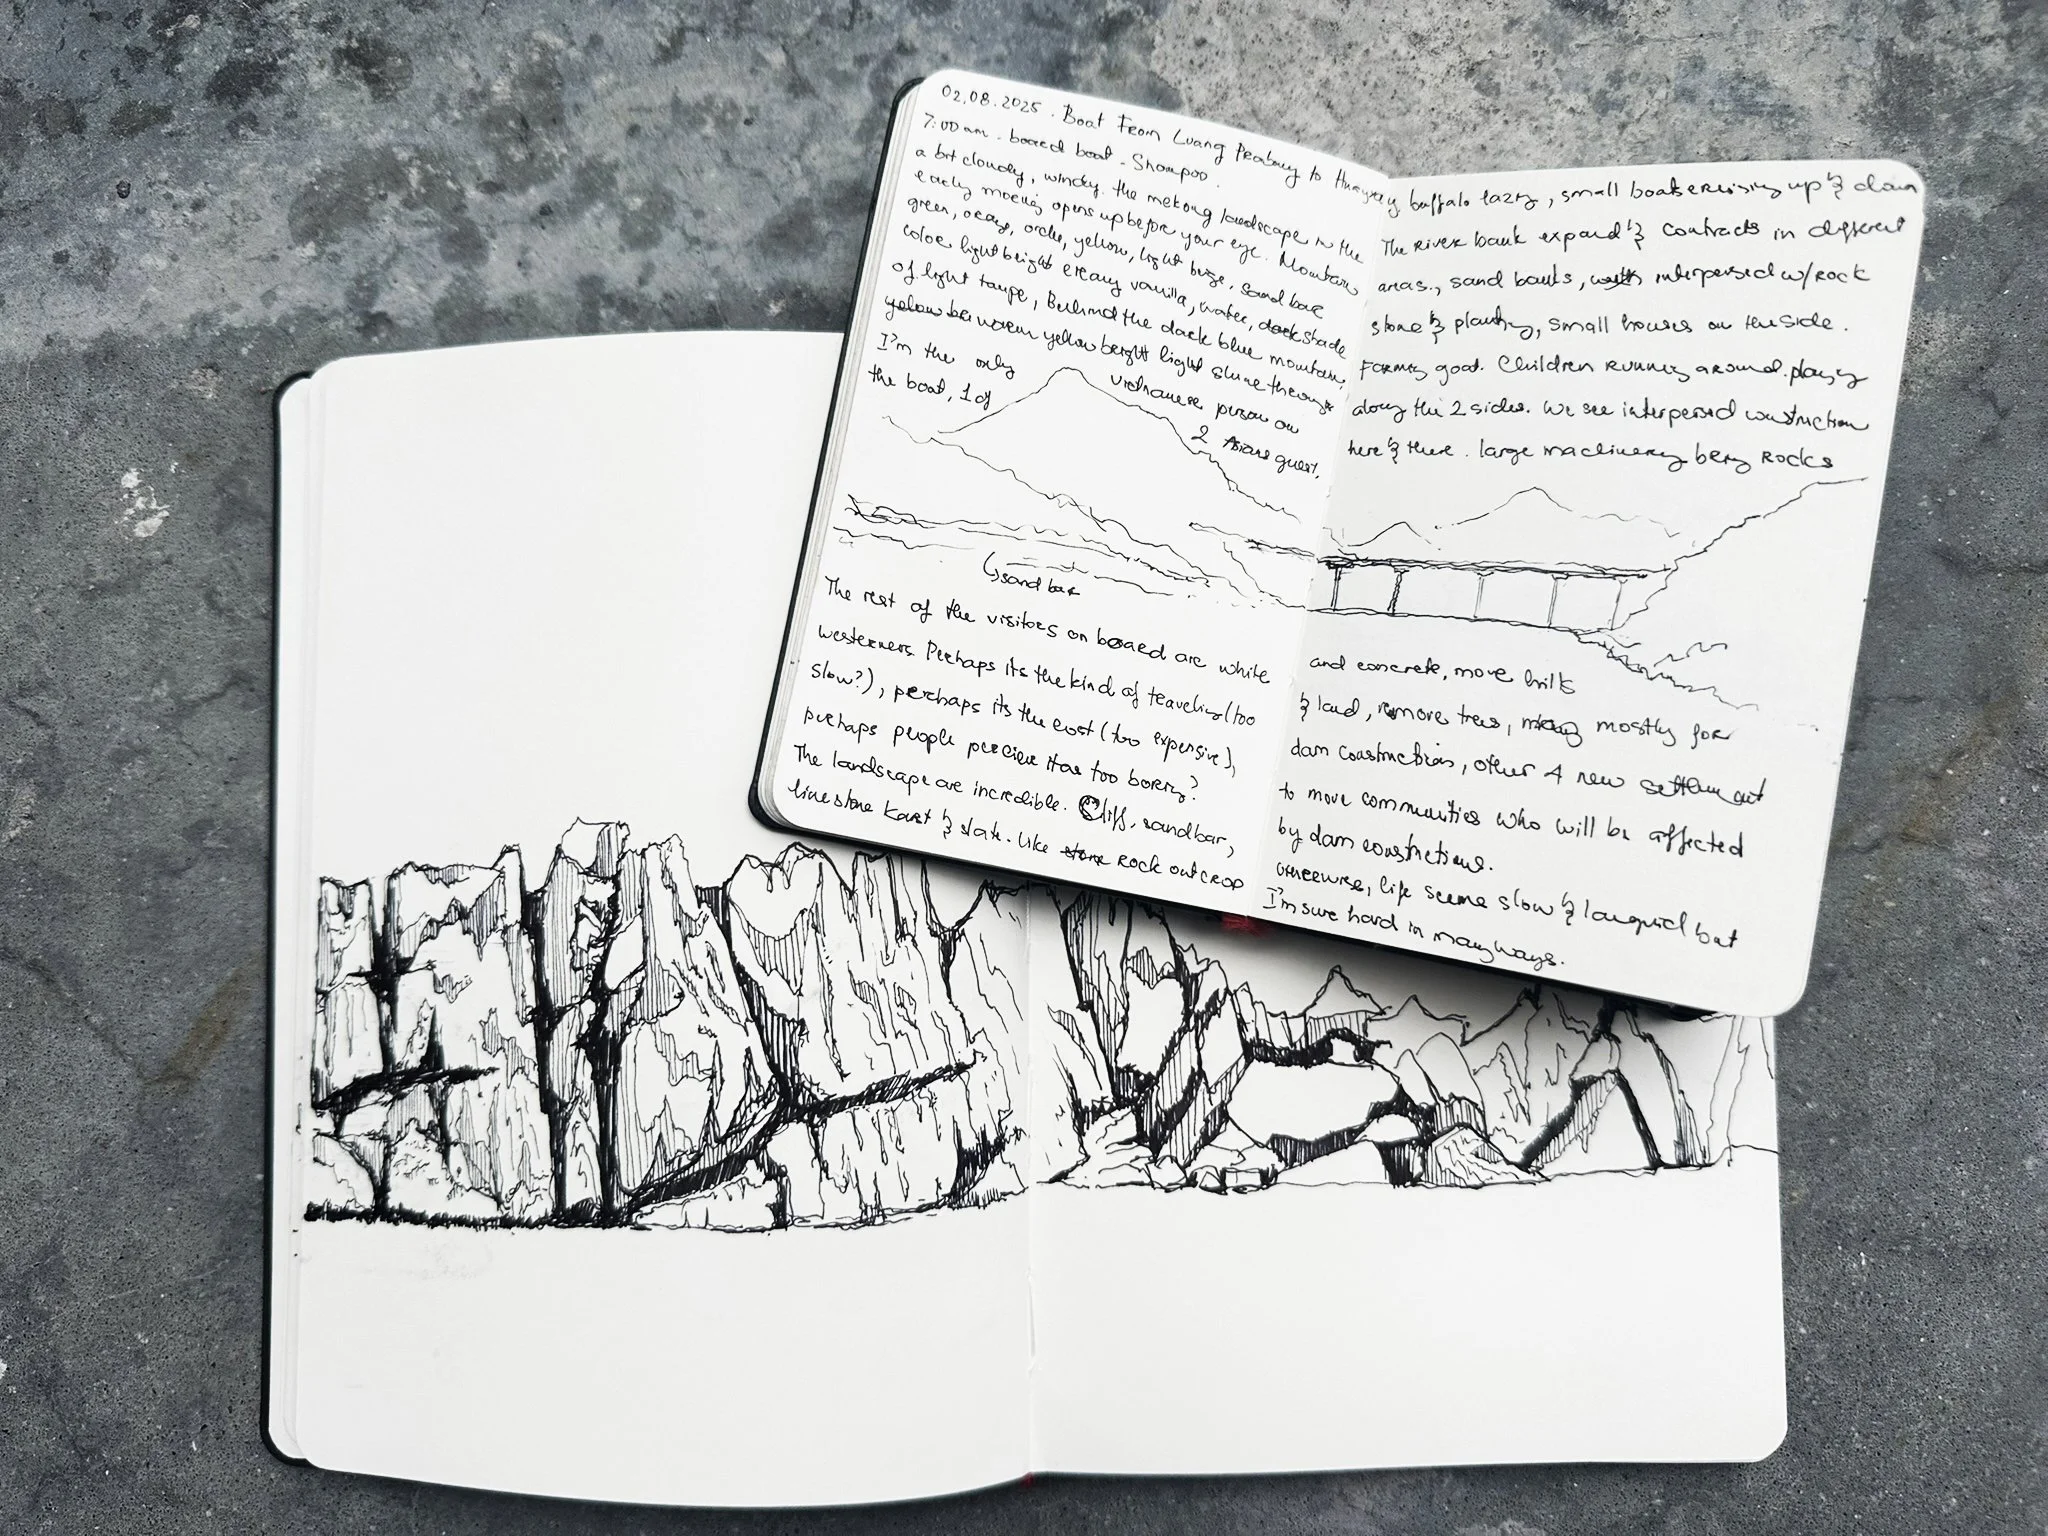 02.08.2025. Boat From Luang Prabang to
7:00 am. board boat - Shompoo.
a bit cloudy, windy. the mekong landscape in the
early morning opens up before your eye. Mountains
green, orang, yellow, light beige, sand bar
color light bright creamy vanilla, water, dark shade
of light taupe, Behind the dark blue mountain,
warm yellow bright light shine through
I'm the only vietnamese person on
the boat, 1 of 2 Asians guest.
sand bar
The rest of the visitors on board are white
westerners. Perhaps its the kind of traveling (too
slow?), perhaps its the cost (too expensive),
perhaps people percieve it as too boring?
The landscape are incredible. Cliff, sandbar,
limestone Karst & slate. Like stone rock outcrop
buffalo lazy, small boats cruising up & down
The river bank expand & contracts in different
areas., sand banks, with interpersed w/ Rock
stone & planting, small houses on the side.
Farming goat. Children running around. playing
along the 2 sides. We see interpersed construction
here & there. large machinery bring rocks
and concrete, move hills
& land, remove trees, mostly for
dam construction, other 4 new settlement
to move communities who will be affected
by dam constructions.
otherwise, life seems slow & languid but
I'm sure hard in many ways.